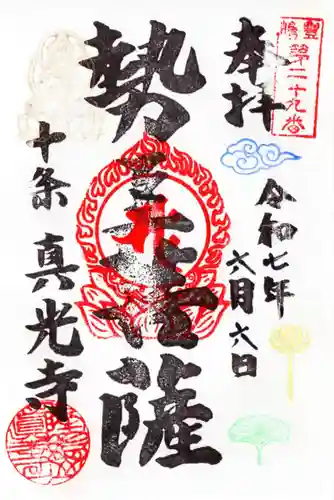 豊嶋第二十九番
奉拝
令和七年
六月六日
勢至菩薩
十条 真光寺